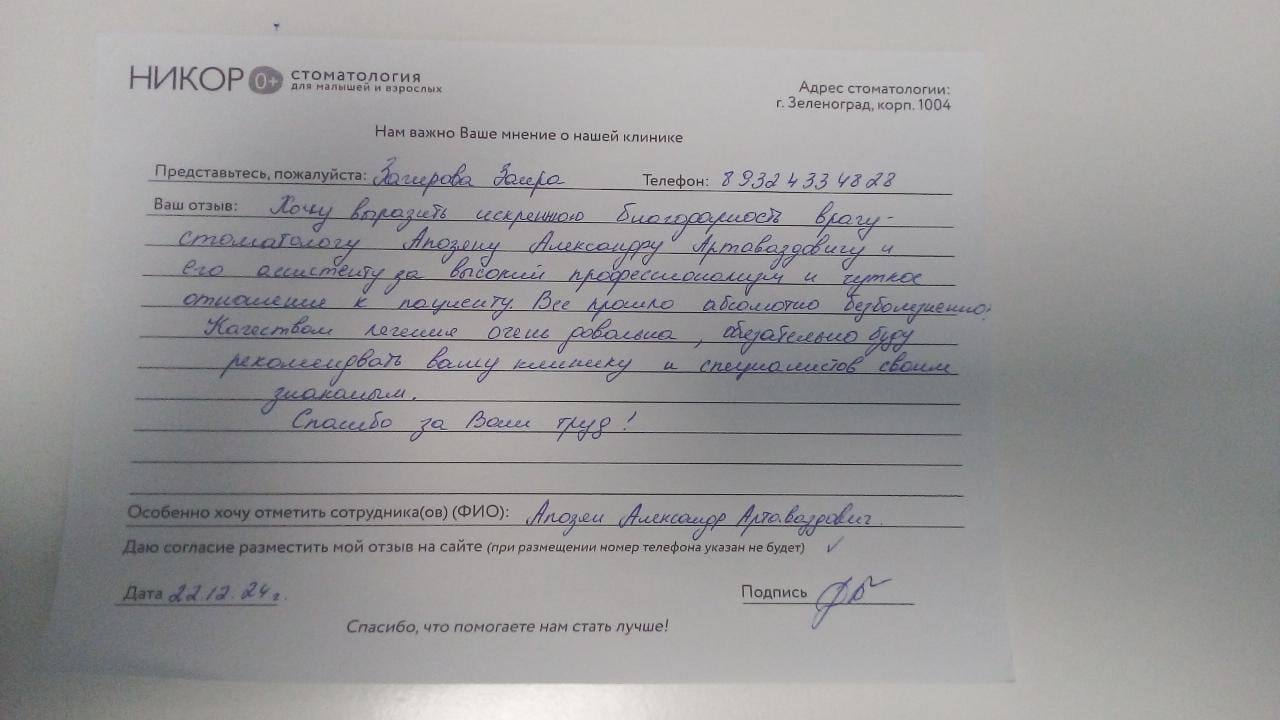 НИКОР 0+ стоматология
для малышей и взрослых
Адрес стоматологии:
г. Зеленоград, корп. 1004
Нам важно Ваше мнение о нашей клинике
Представьтесь, пожалуйста: Загирова Заира Телефон: 8 932 433 48 28
Ваш отзыв: Хочу выразить искреннюю благодарность врачу-
стоматологу Апозяну Александру Артаваздовичу и
его ассистенту за высокий профессионализм и чуткое
отношение к пациенту. Все прошло абсолютно безболезненно.
Качеством лечения очень довольна, обязательно буду
рекомендвать вашу клинику и специалистов своим
знакомым.
Спасибо за Ваш труд!
Особенно хочу отметить сотрудника(ов) (ФИО): Апозян Александр Артаваздович.
Даю согласие разместить мой отзыв на сайте (при размещении номер телефона указан не будет) ✓
Дата 22.12.24г. Подпись
Спасибо, что помогаете нам стать лучше!